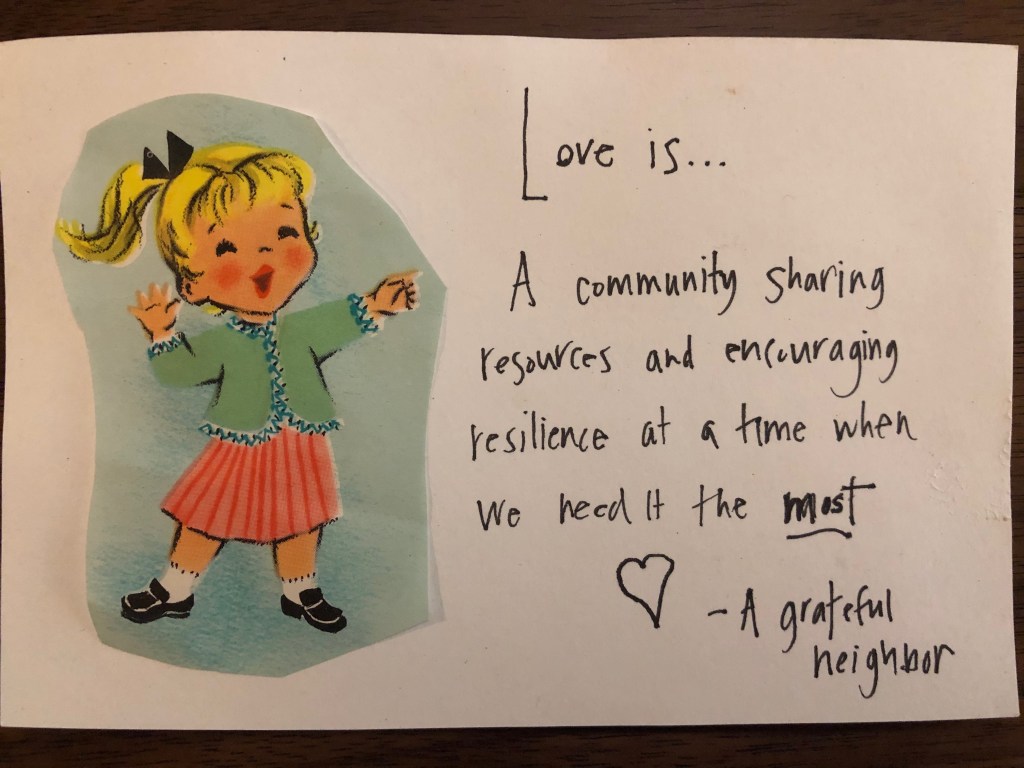 Love is...
A community sharing
resources and encouraging
resilience at a time when
we need it the most
- A grateful
neighbor